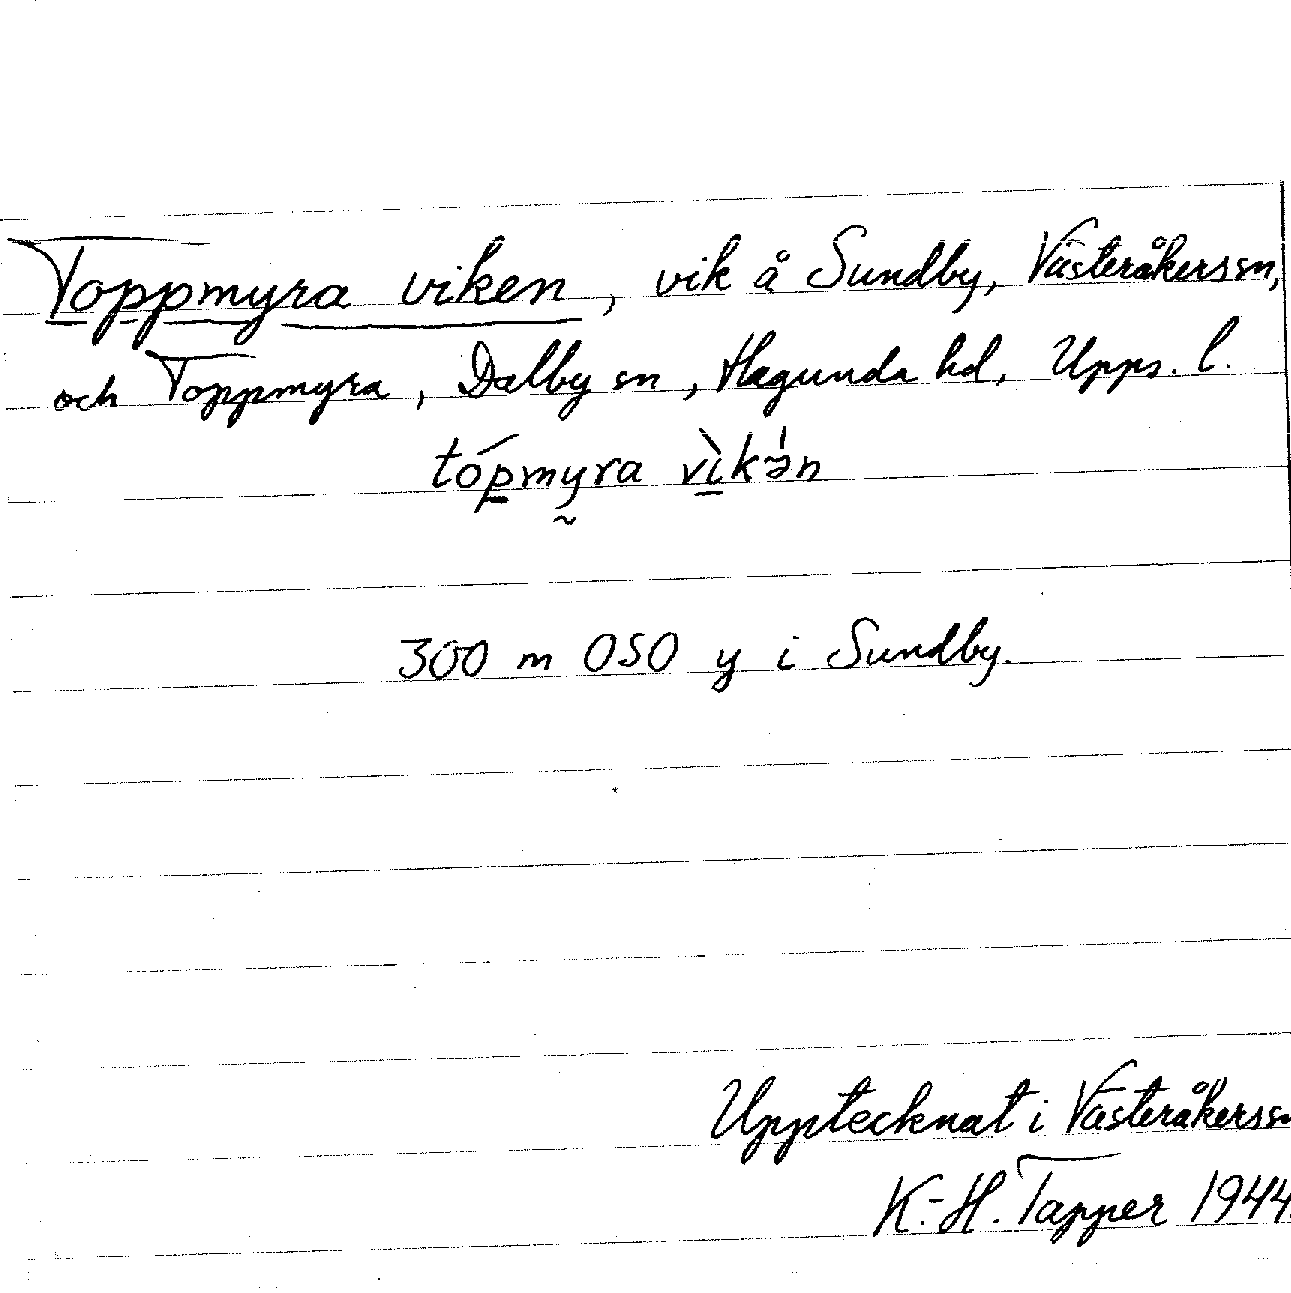 Toppmyra viken, vik å Sundby, Västeråkers sn,
och Toppmyra, Dalby sn, Hagunda hd, Upps. l.
tópmyra vìkən
300 m OSO y i Sundby.
Upptecknat i Västeråkers sn
K.-H. Tapper 1944.